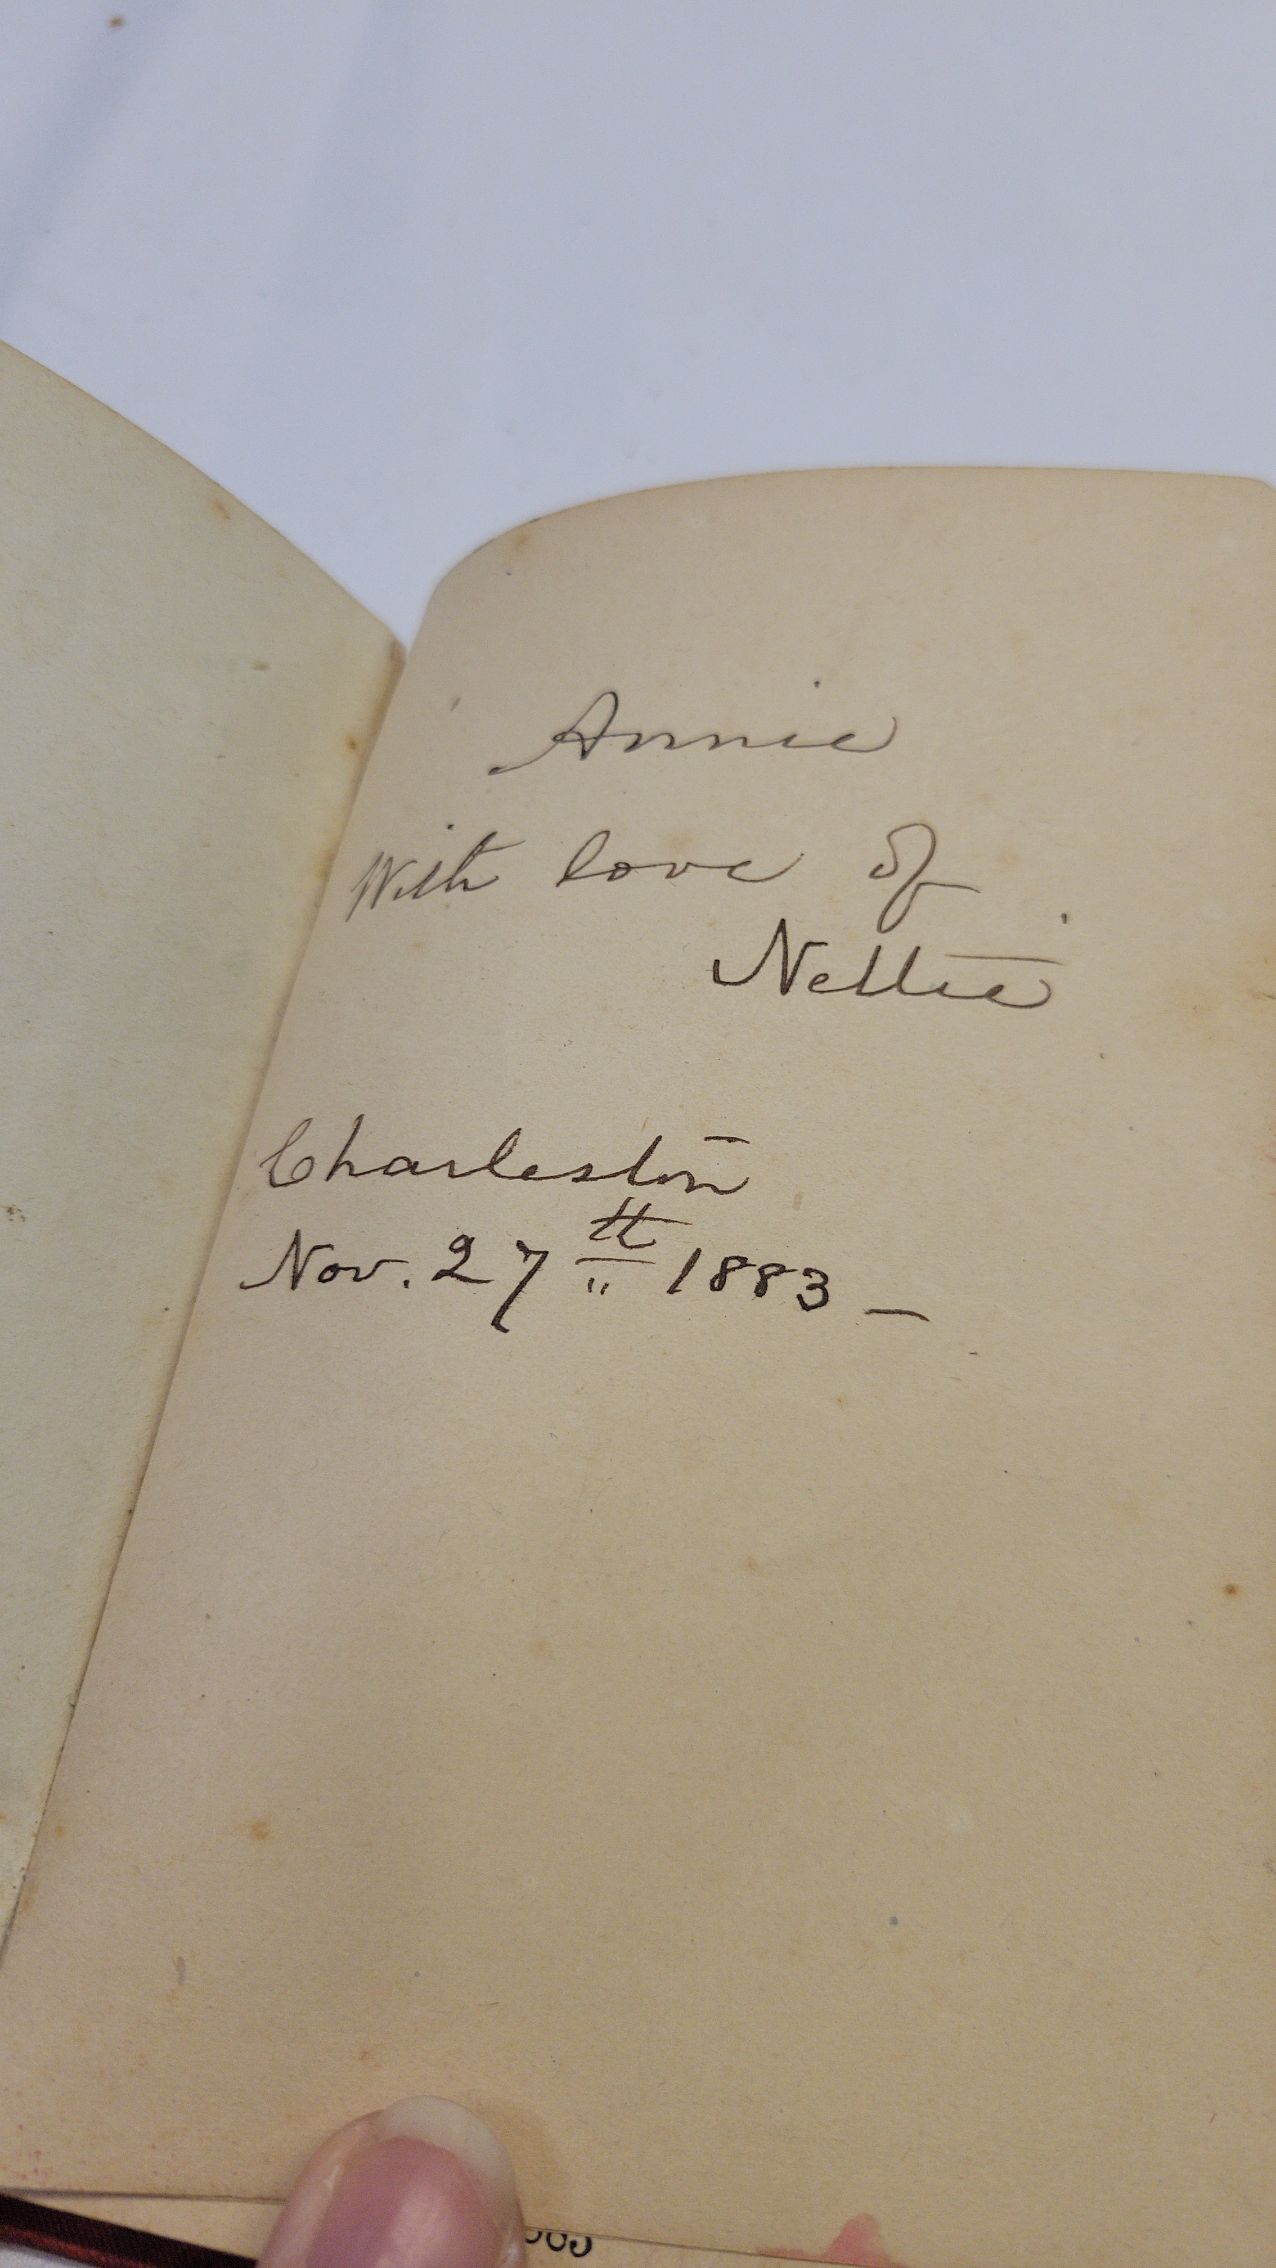 Annie
With love of
Nellie
Charleston
Nov. 27th 1883 –